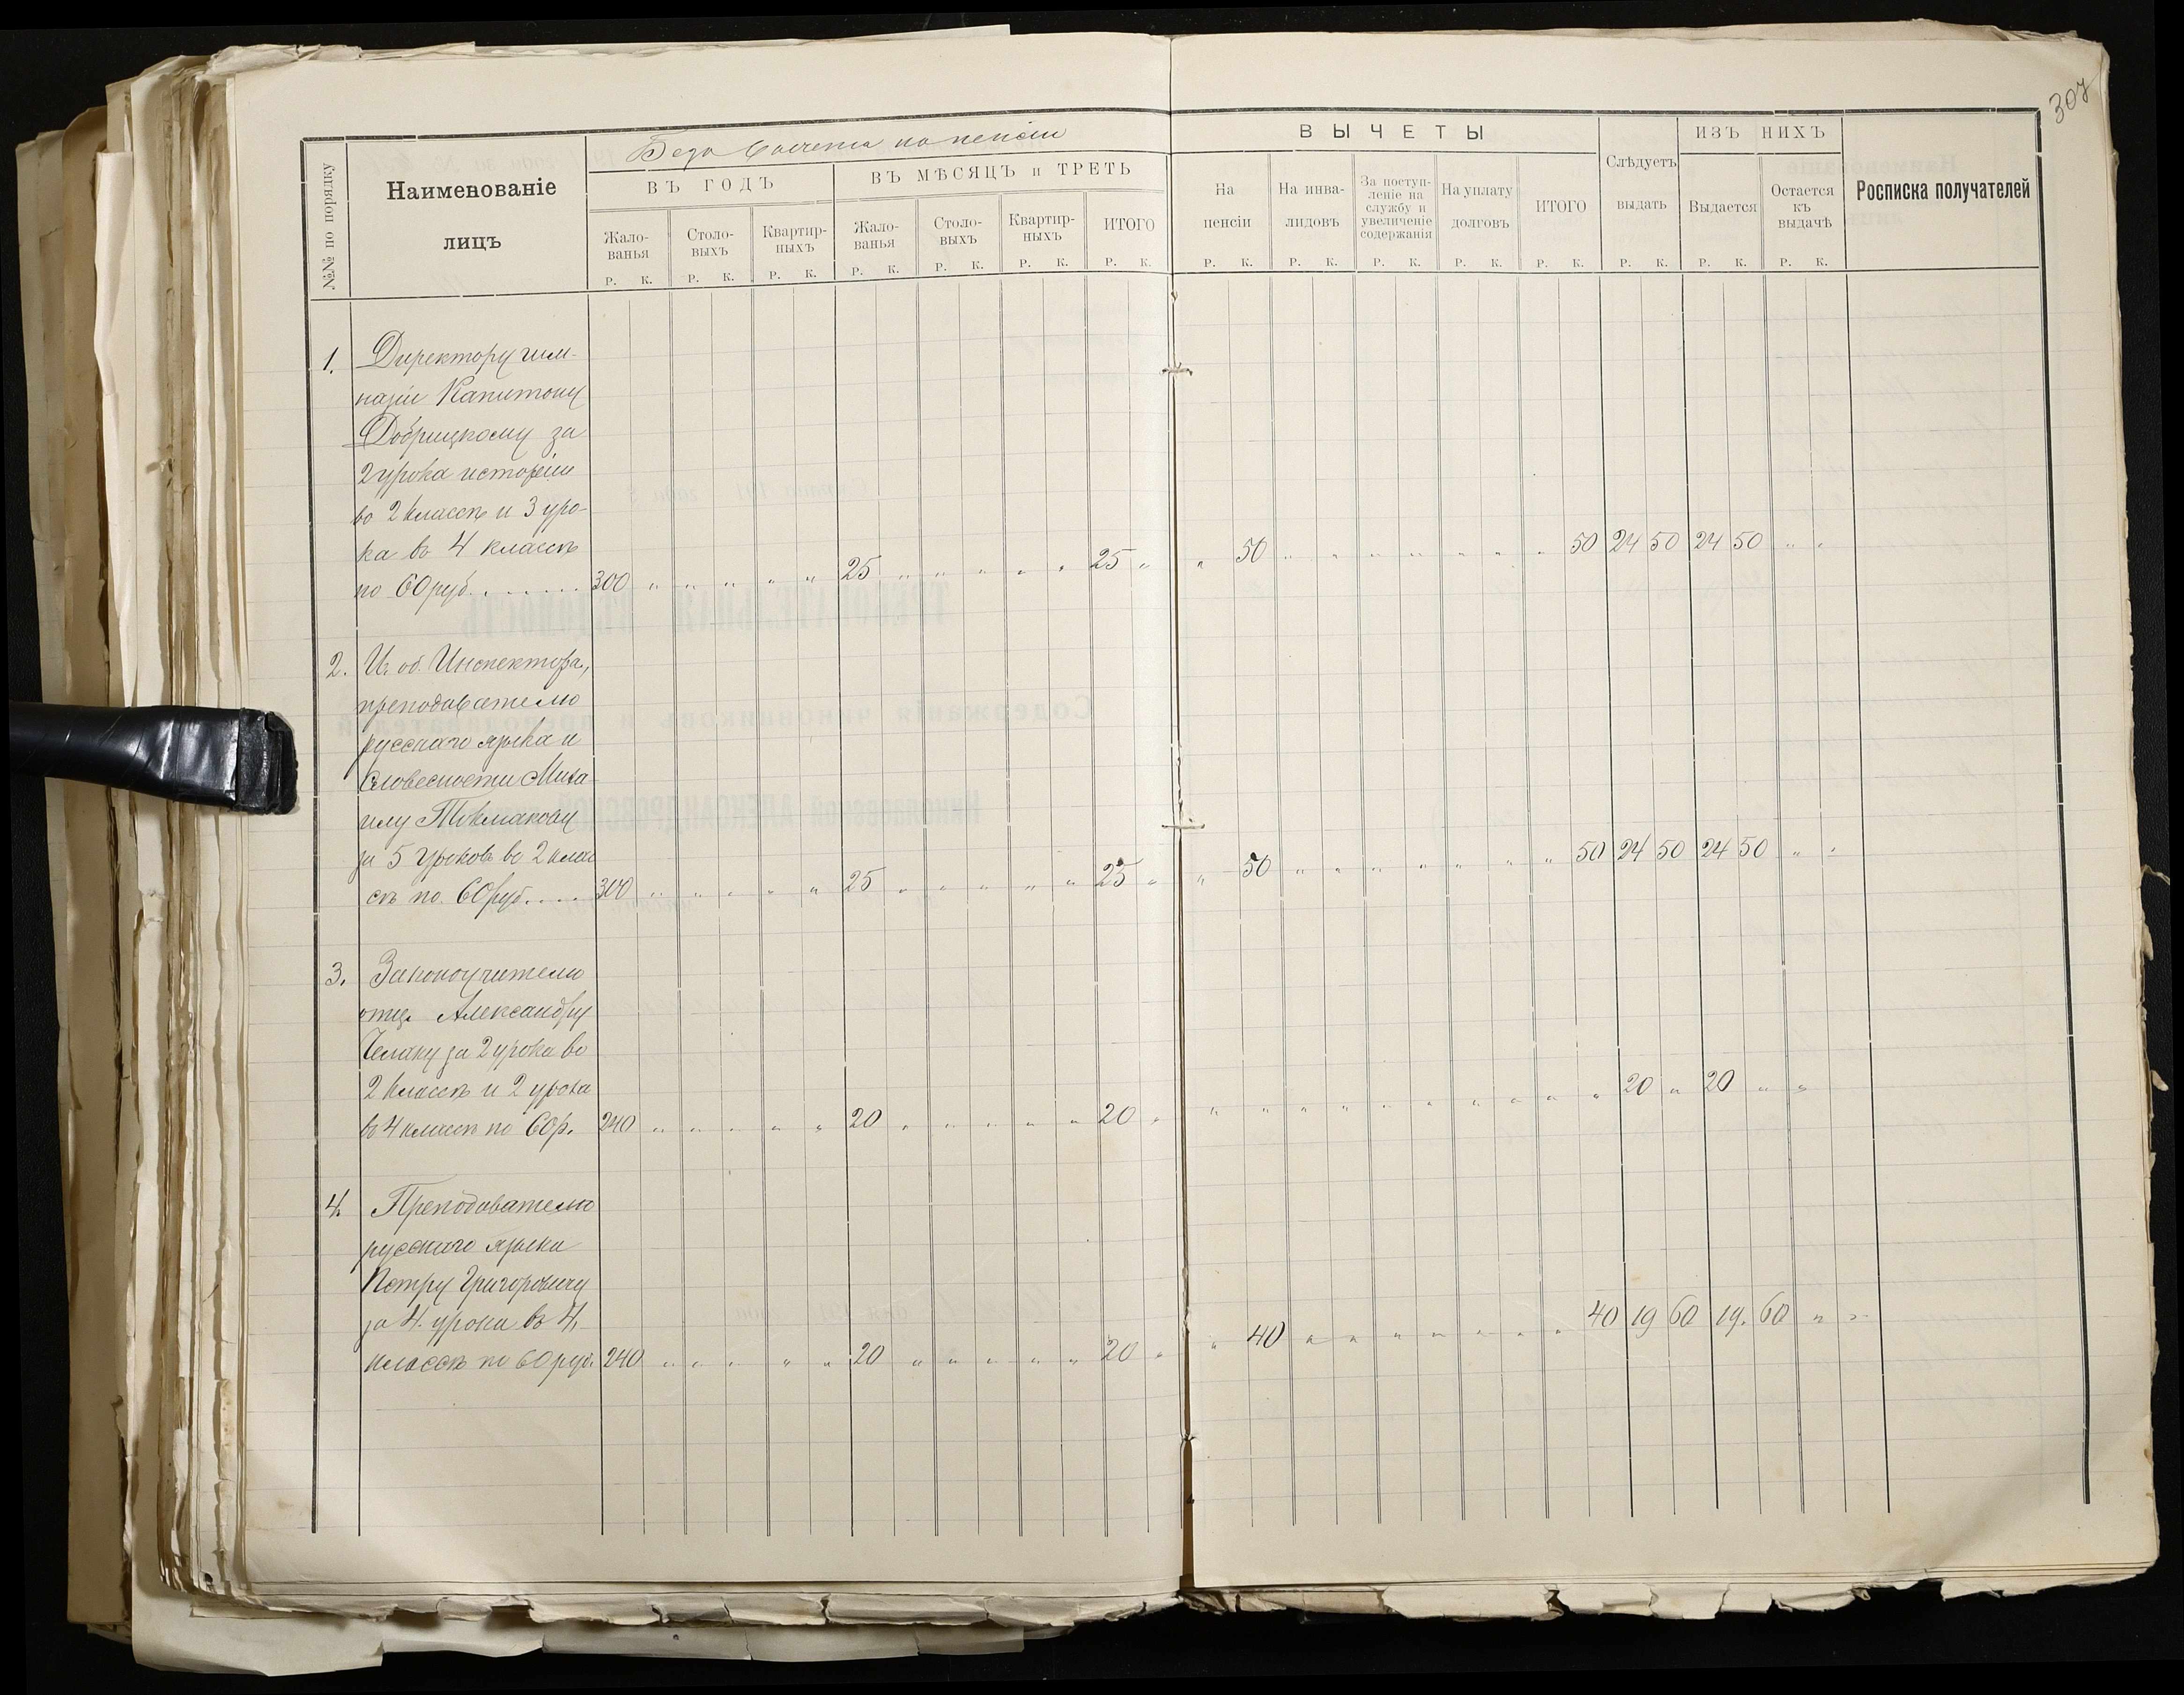 307
Безъ вычета на пенсіи
№№ по порядку
Наименованіе
лицъ
ВЪ ГОДЪ
ВЪ МѢСЯЦЪ и ТРЕТЬ
Жало-
ванья
Столо-
выхъ
Квартир-
ныхъ
Жало-
ванья
Столо-
выхъ
Квартир-
ныхъ
ИТОГО
Р. К. Р. К. Р. К. Р. К. Р. К. Р. К. Р. К.
ВЫЧЕТЫ
На
пенсіи
На инва-
лидовъ
За поступ-
леніе на
службу и
увеличеніе
содержанія
На уплату
долговъ
ИТОГО
Слѣдуетъ
выдать
ИЗЪ НИХЪ
Выдается
Остается
къ
выдачѣ
Росписка получателей
Р. К. Р. К. Р. К. Р. К. Р. К. Р. К. Р. К. Р. К.
1. Директору гим-
назіи Капитону
Добрицкому за
2 урока исторіи
во 2 классѣ и 3 уро-
ка въ 4 классѣ
по 60 руб. . . . . . . . 300 " " " " " 25 " " " " " 25 " " 50 " " " " " " " 50 24 50 24 50 " "
2. И. об. Инспектора,
преподавателю
русскаго языка и
словесности Миха
илу
за 5 уроковъ во 2 клас
сѣ по 60 руб. . . . 300 " " " " " 25 " " " " " 25 " " 50 " " " " " " " 50 24 50 24 50 " "
3. Законоучителю
отцу Александру
Челану за 2 урока во
2 классѣ и 2 урока
въ 4 классѣ по 60 р. 240 " " " " " 20 " " " " " 20 " " " " " " " " " " " 20 " 20 " " "
4. Преподавателю
русскаго языка
Петру Григоровичу
за 4 урока въ 4
классѣ по 60 руб. 240 " " " " " 20 " " " " " 20 " " 40 " " " " " " " 40 19 60 19. 60 " "